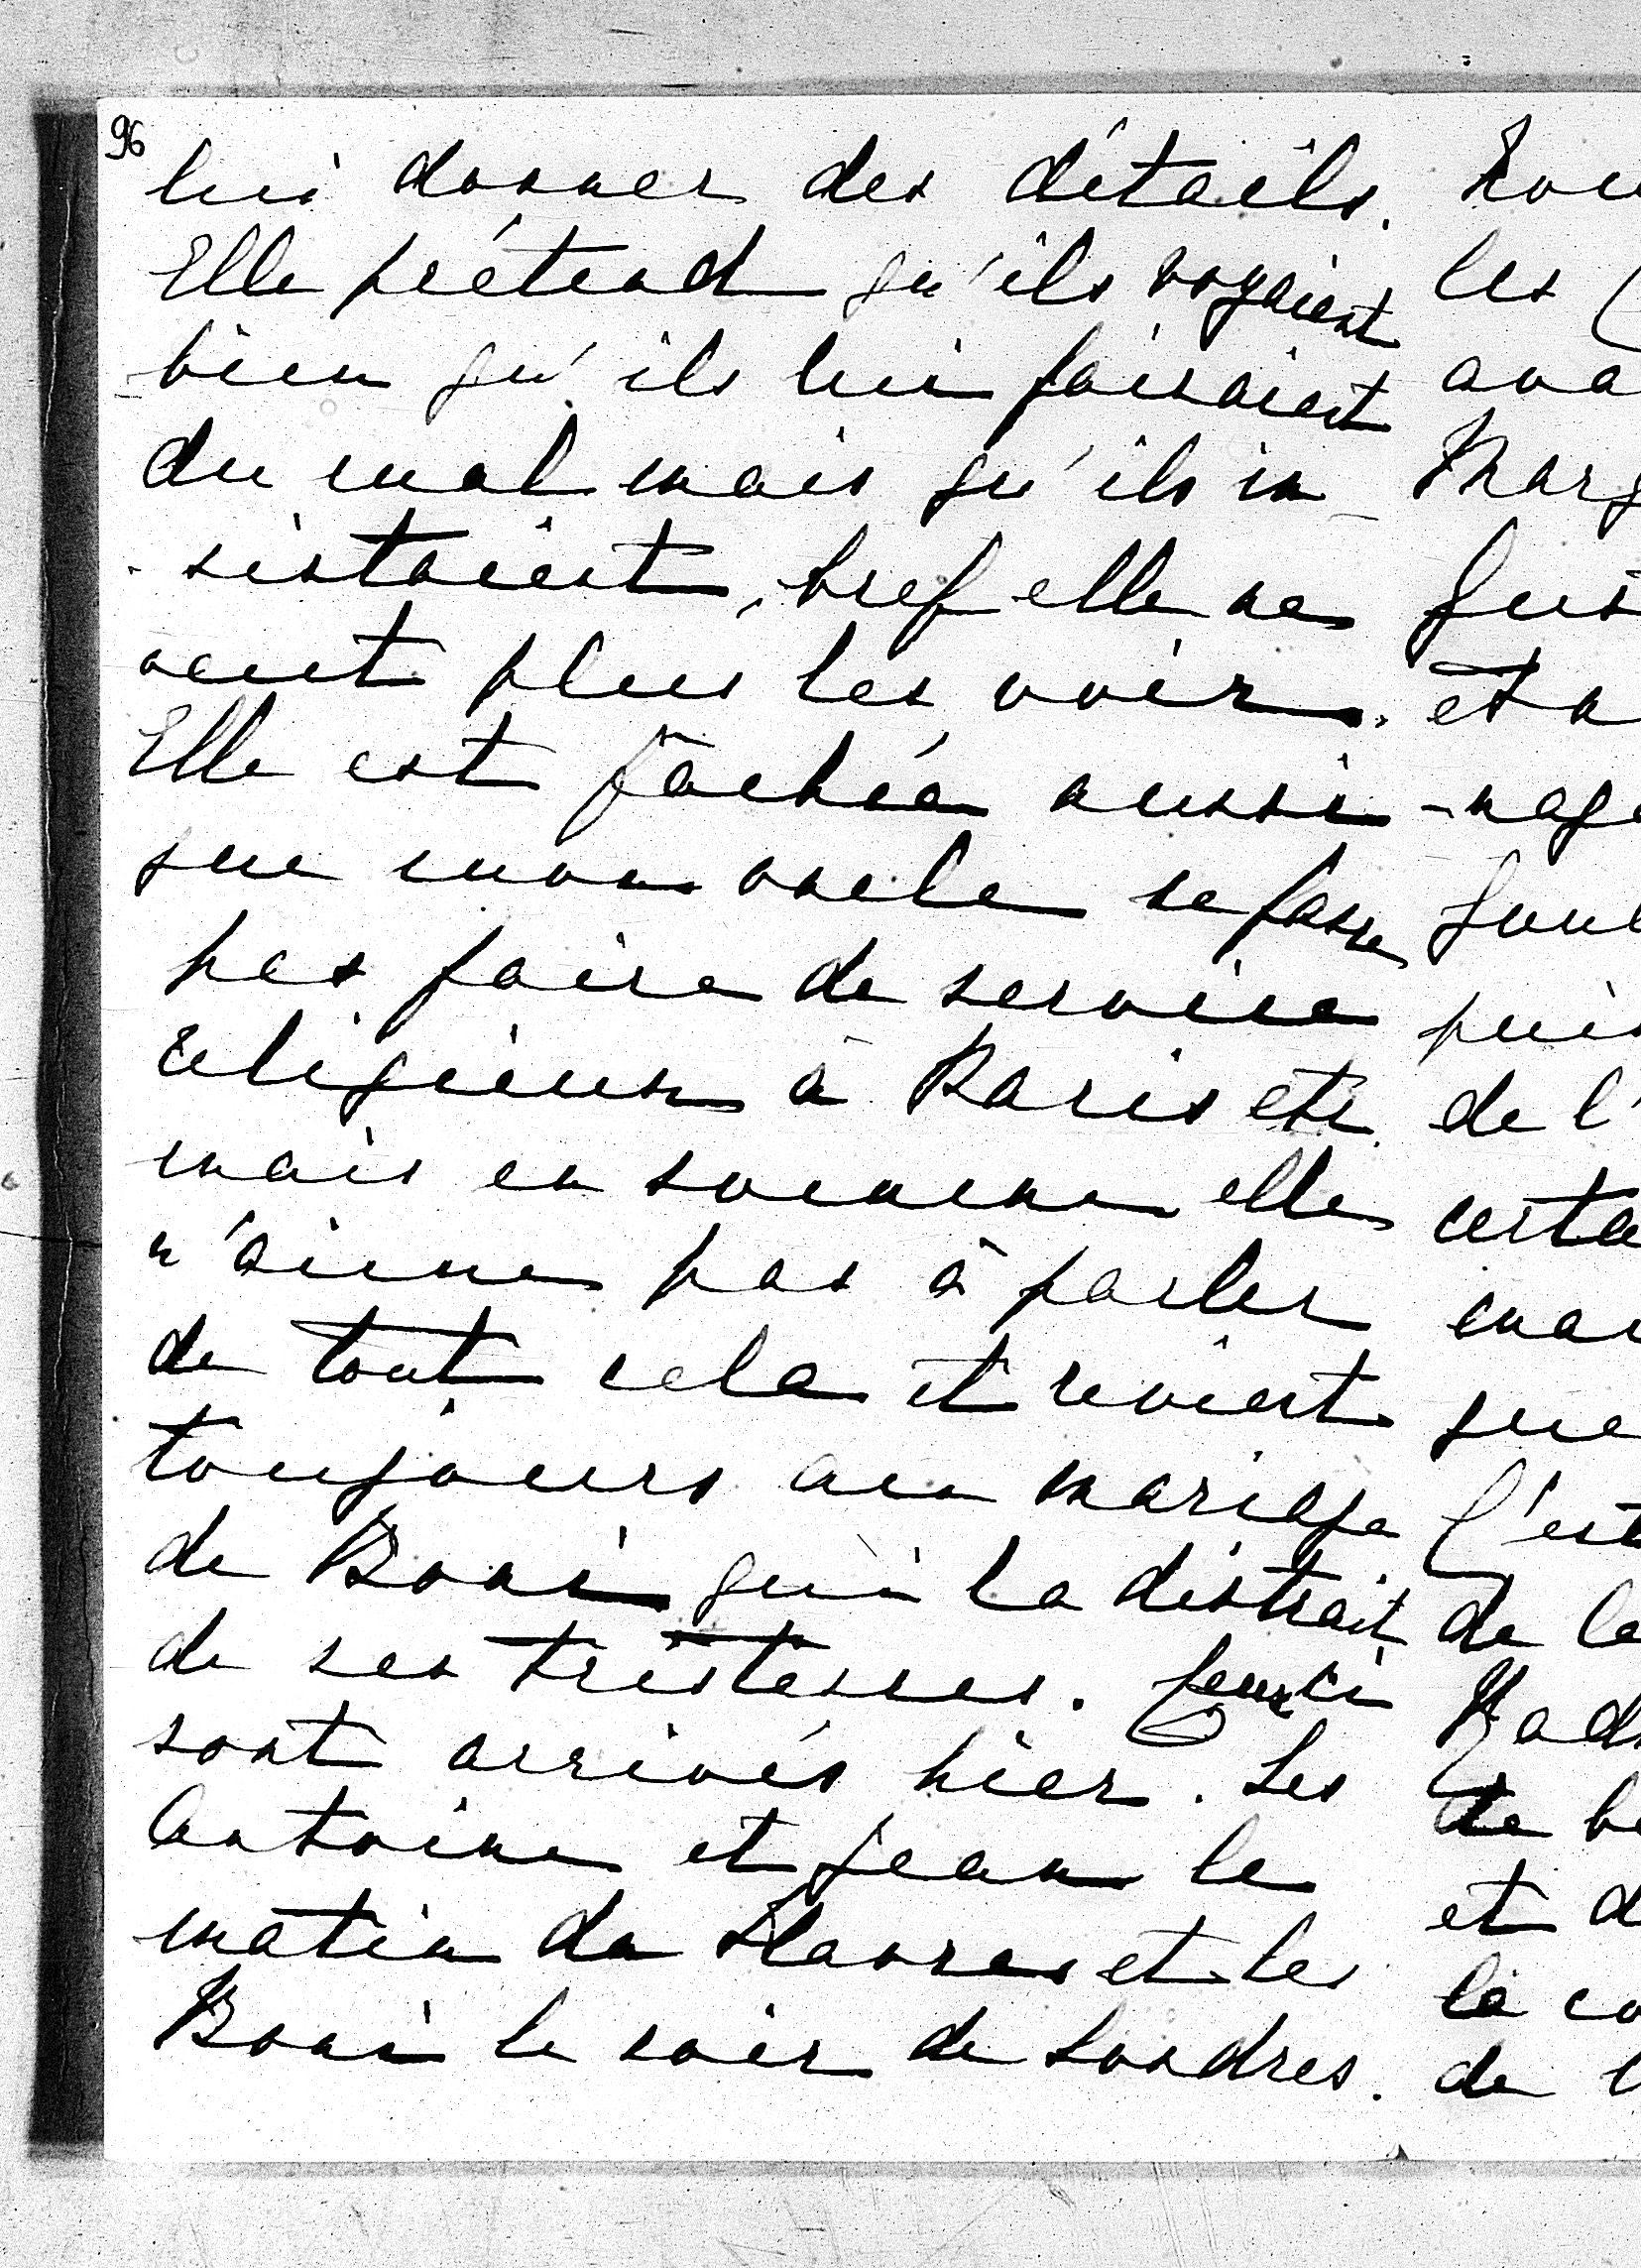 96
lui donner des détails.
Elle prétend qu'ils voyaient
bien qu'ils lui faisaient
du mal mais qu'ils in-
-sistaient, bref elle ne
veut plus les voir.
Elle est fâchée aussi
que mon oncle ne fasse
pas faire de service
religieux à Paris etc.
mais en somme elle
n'aime pas à parler
de tout cela et revient
toujours au mariage
de Boni qui la distrait
de ses tristesses. Ceux ci
sont arrivés hier. Les
Antoine et Jean le
matin du Havre et les
Boni le soir de Londres.
les
ava
Marg
et a
-nage
puis
de l'
certa
mai
que
C'est
de la
de b
et d
le co
de l